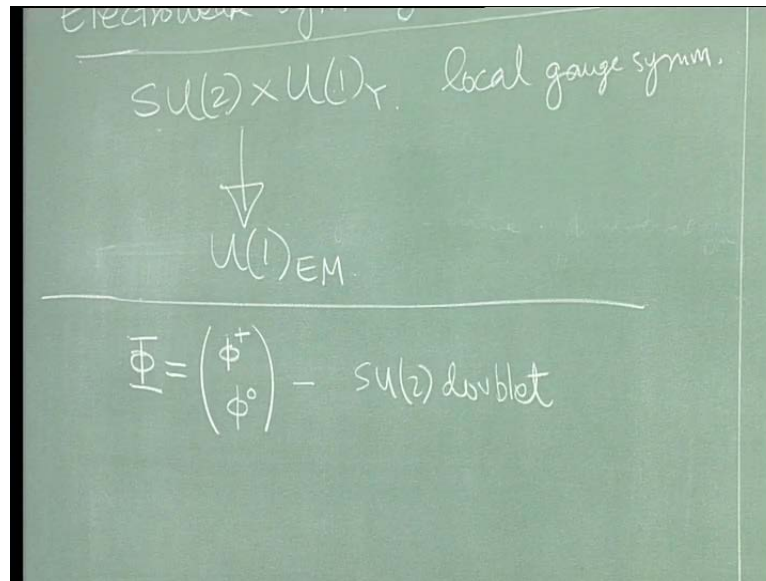 Electroweak
SU(2) × U(1)Y. local gauge symm.
U(1)EM.
Φ = (ϕ⁺ ϕ⁰) - SU(2) doublet